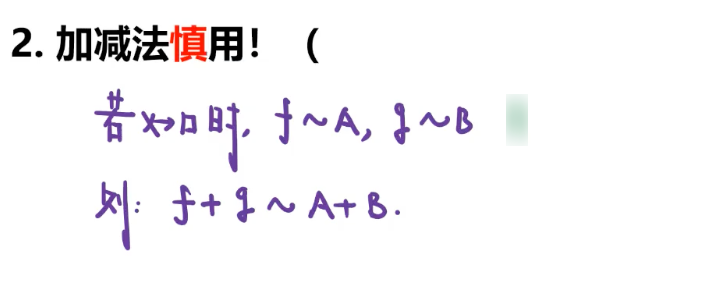 2. 加减法慎用！（
若x→□时, f~A, g~B
则: f+g~A+B.